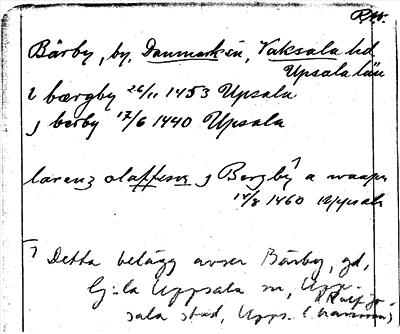 RW.
Bärby, by, Danmarks sn, Vaksala hd
Upsala län
i bærgby 26/11 1453 Upsala
j berby 17/6 1440 Upsala
larenz olaffson j Bergby 1 a waapn
14/8 1460 Uppsala
1 Detta belägg avser Bärby, gd,
G:la Uppsala sn, Upp-
sala stad, Upps. l.